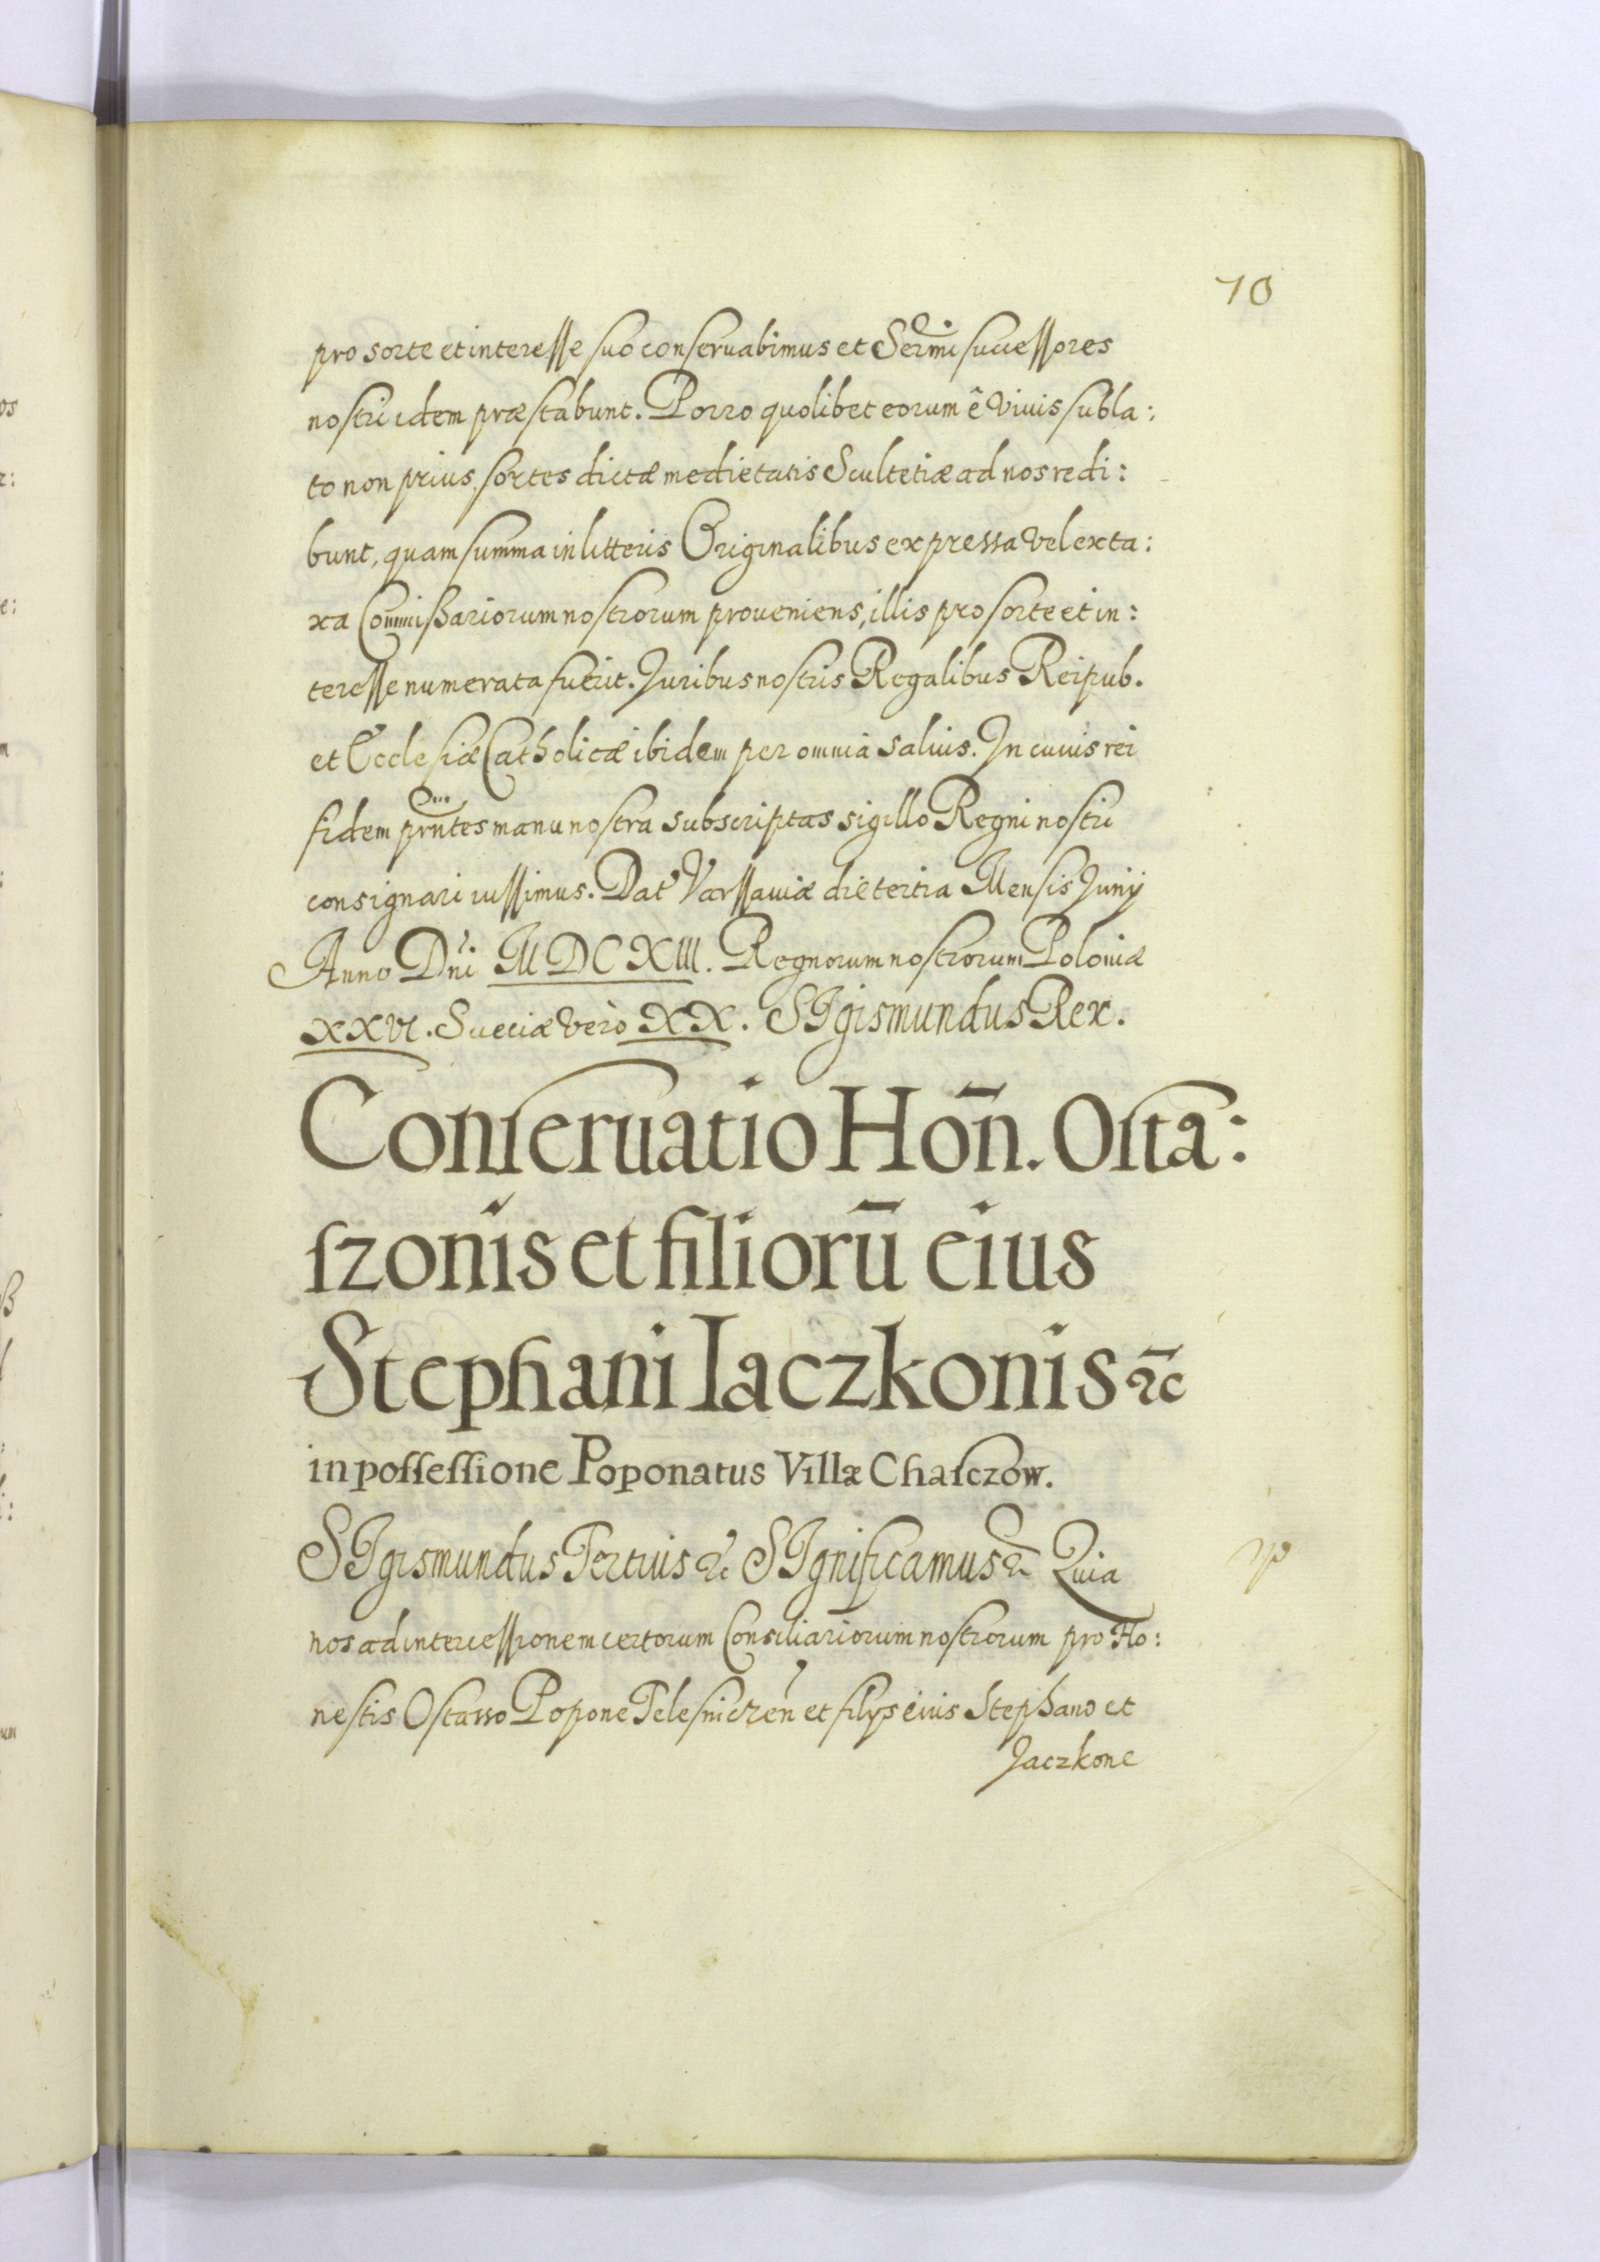 70
pro sorte et interesse suo conseruabimus et Sermi successores
nostri idem præstabunt. Porro quolibet eorum ê viuis subla:
to non prius, sortes dictæ medietatis Scultetiæ ad nos redi:
bunt, quam summa in litteris Originalibus expressa vel exta:
xa Commißariorum nostrorum proueniens, illis pro sorte et in:
teresse numerata fuerit. Juribus nostris Regalibus Reipub.
et Ecclesiæ Catholicæ ibidem per omnia saluis. In cuius rei
fidem prntes manu nostra subscriptas sigillo Regni nostri
consignari iussimus. Dat Varssauiæ die tertia Mensis Junij
Anno Dni MDCXIII. Regnorum nostrorum Poloniæ
XXVI. Sueciæ vero XX. SIgismundus Rex.
Conſeruatio Hon̄. Oſta:
ſzonis et filiorū eius
Stephani Iaczkonis ꝛc
in poſſeſſione Poponatus Villæ Chaſczow.
SIgismundus Tertius &c SIgnificamus &c Quia
nos ad intercessionem certorum Consiliariorum nostrorum pro Ho:
nestis Ostasso Popone et filijs eius Stephano et
Jaczkone